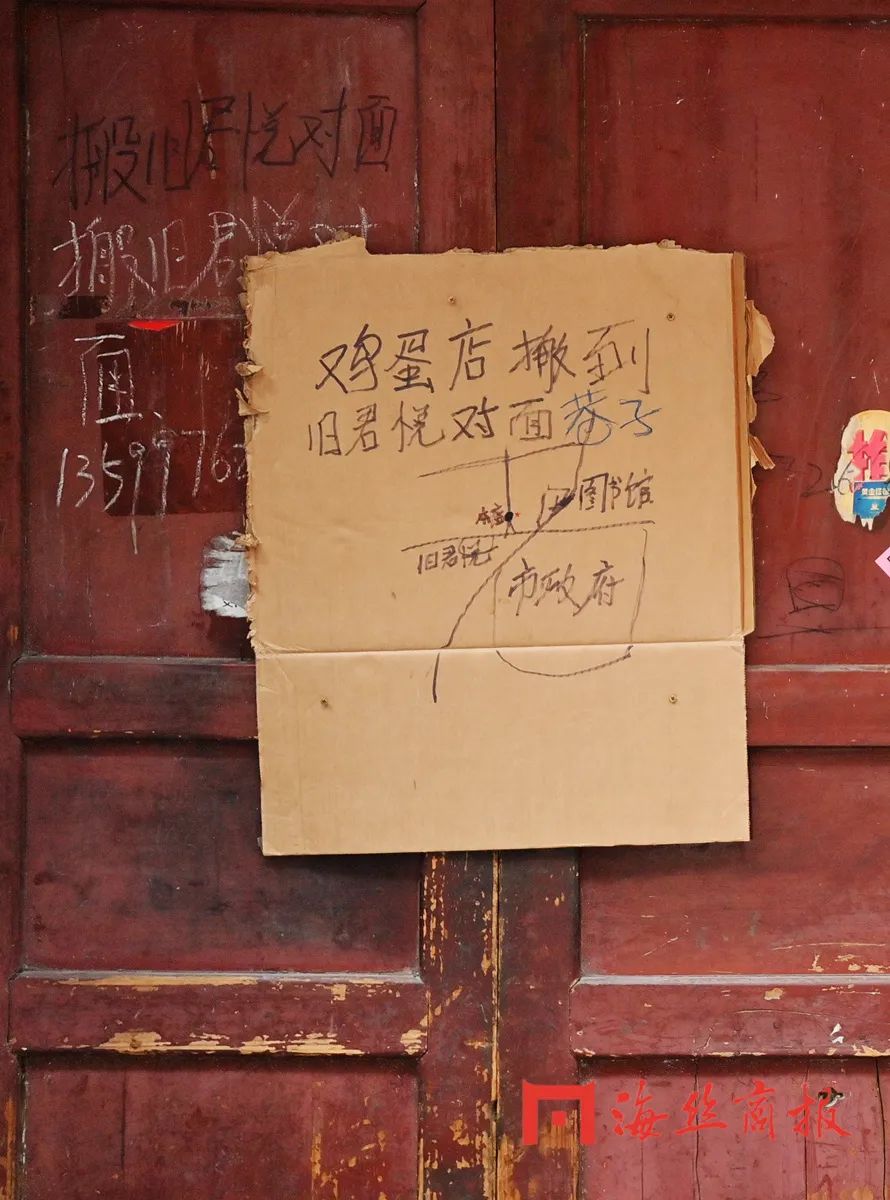 搬旧君悦对面
搬旧群悦对
面
1359976
鸡蛋店搬到
旧君悦对面巷子
图书馆
本店
旧君悦
市政府
推
海丝商报